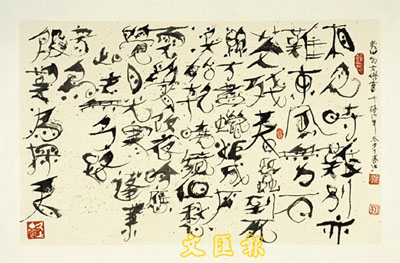 相見時難別亦
難東風無力百
花殘春蠶到死
絲方盡蠟炬成灰
淚始乾曉鏡但愁
雲鬢改夜吟應
覺月光寒蓬萊
此去無多路
青鳥
殷勤為探看
文匯報